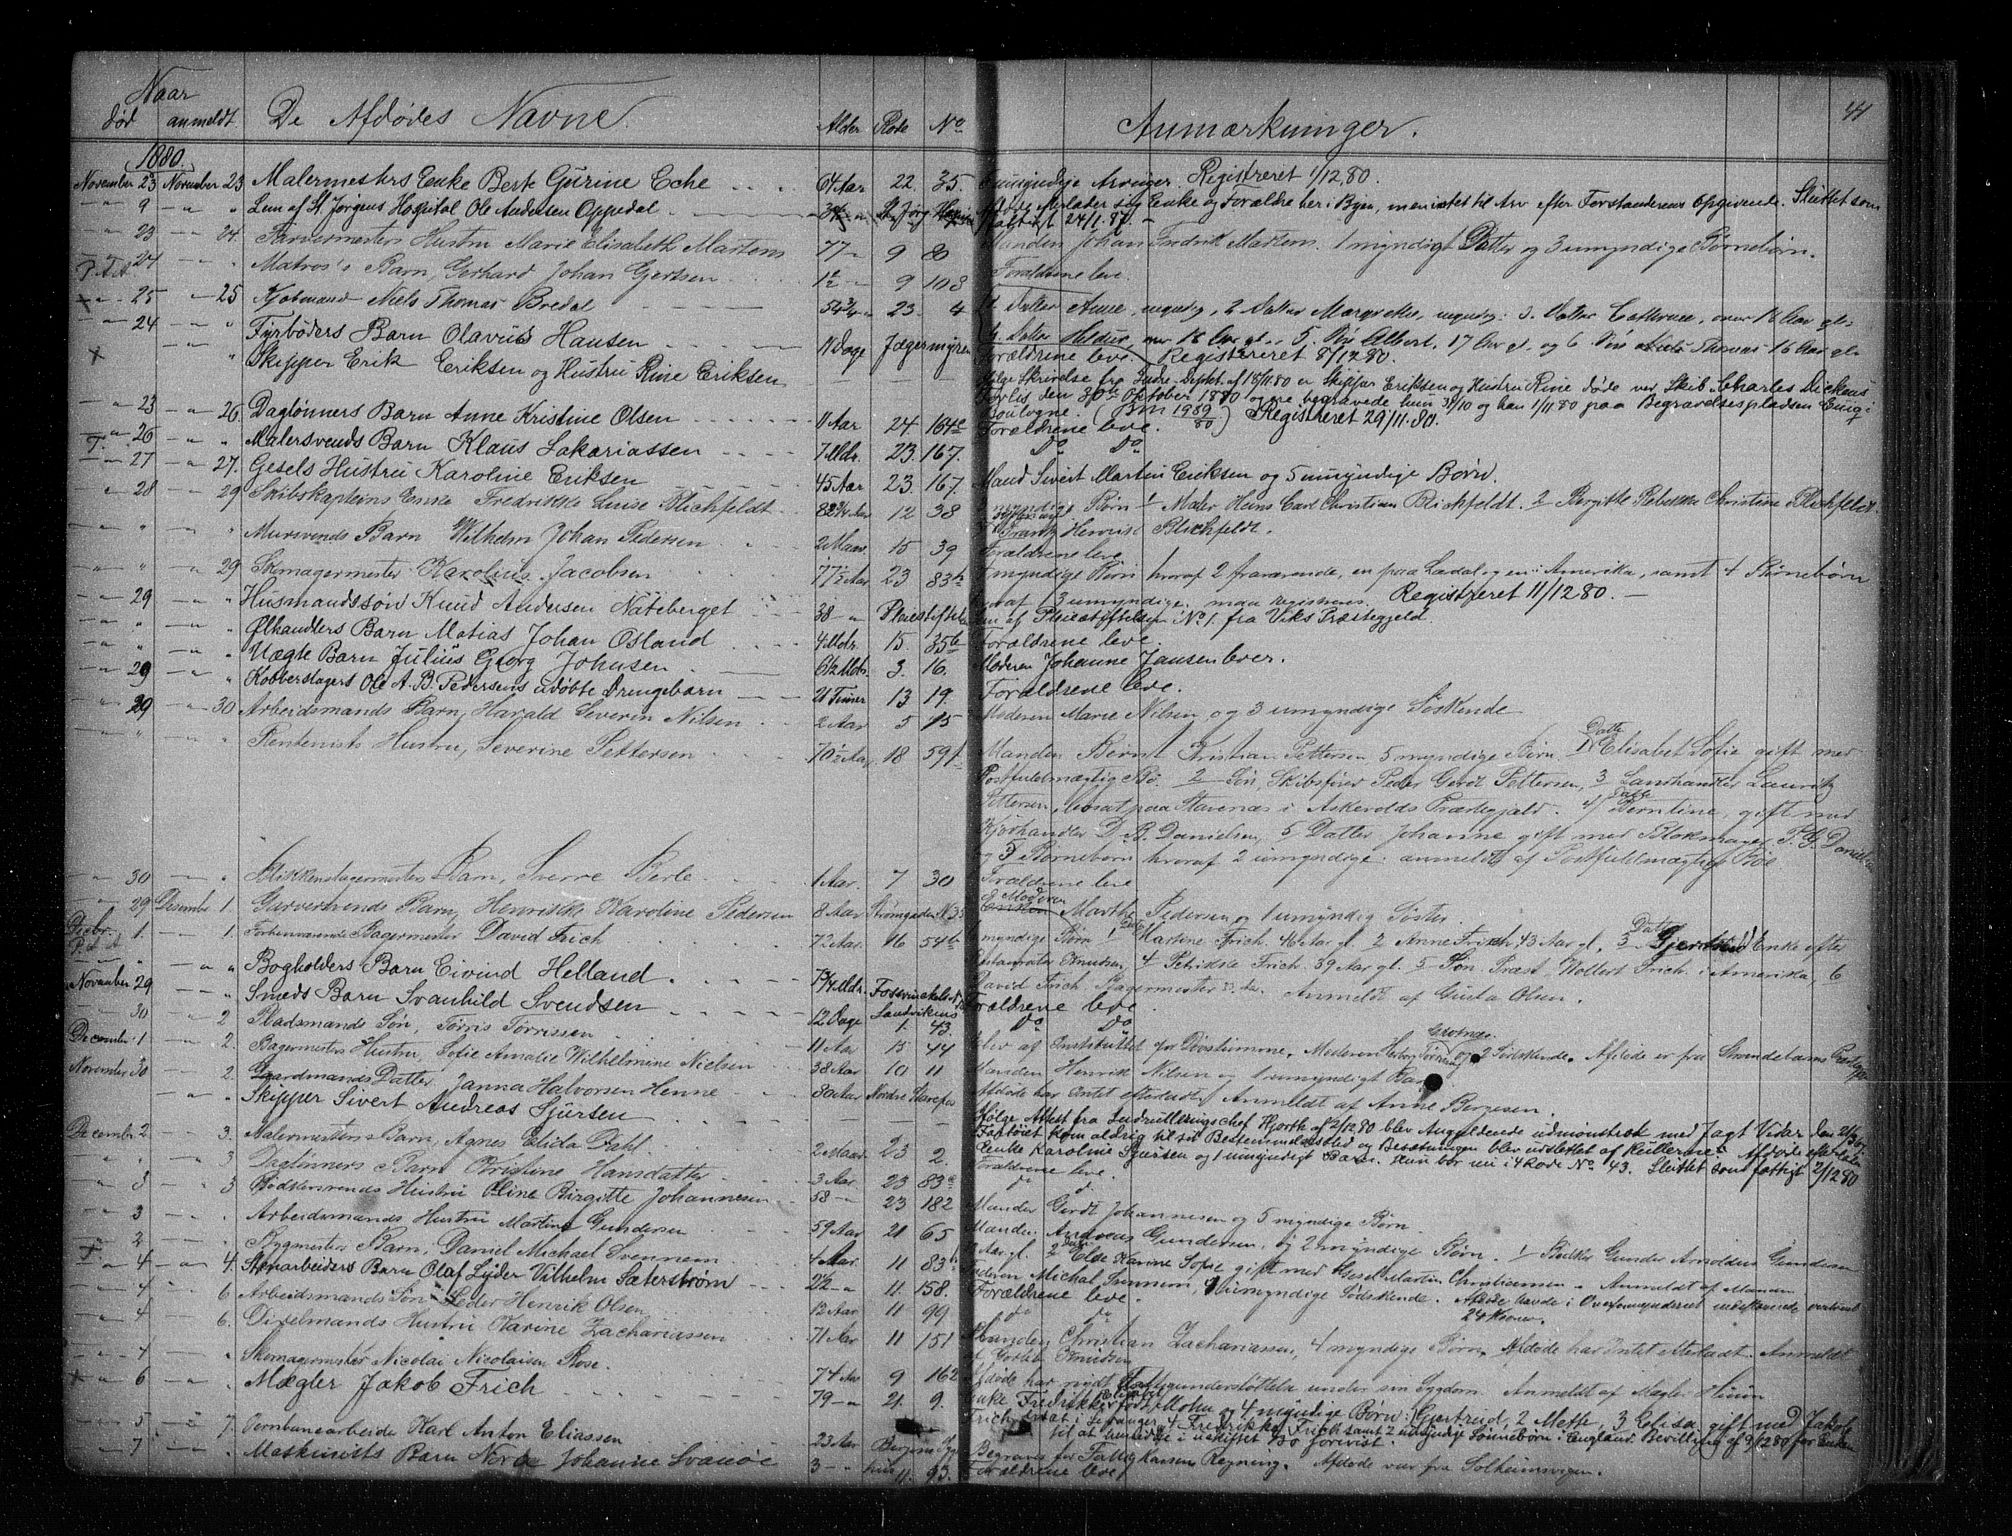 44
Naar
død anmeldt. De Afdødes Navne. Alder Rode No Anmærkninger.
1880.
November 23 November 23 Malermesters Enke Berte Gurine Eche 64 Aar 22. 35. Umyndige Arvinger. Registreret 1/12.80.
" 9 " " Lem af St. Jørgens Hospital Ole Andersen Oppedal St. Jørg. Hospital Enke og Forældre her i Byen, men intet til Arv efter Forstanderens Opgivende. Sluttet som
fattigt 24/1.87.
" 23 24. Farvermesters Hustru Marie Elisabeth Martens 77 " 9 8 Manden Johan Fredrik Martens. 1 myndig Datter og 3 umyndige Børnebørn.
" 24 Matros's Barn, Gerhard Johan Gjertsen 1½ " 9 108 Forældrene leve.
" 25 " 25 Kjøbmand Niels Thomas Bredal 54¾ " 23. 4 1 Datter Anne, myndig, 2 Datter Margrethe, myndig; 3. Datter Cathrine, over 18 Aar gl.
4. Datter Hilder, over 18 Aar gl., 5. Søn Albert, 17 Aar gl. og 6 Søn Thomas 16 Aar gl.
" 24 " " Fyrbøders Barn Olavus Hansen 11 Dage Jægermyren Forældrene leve. Registreret 8/12 80.
" Skipper Erik Eriksen og Hustru Rine Eriksen — — — Ifølge Skrivelse fra Indre-Deptet. af 18/11.80 er Skipper Eriksen og Hustru Rine døde ved Skib Charles Dickens
Forlis den 30te Oktober 1880 og ere begravede hun 31/10 og han 1/11 80 paa Begravelsespladsen
Boulogne. (Bm 1989/80) Registreret 29/11.80.
" 23 " 26. Dagtønners Barn Anne Kristine Olsen 11 Aar 24. 164c Forældrene leve.
" 26 " " Malersvends Barn Klaus Sakariassen 7 Mdr. 23. 167. Do Do
" 27 " 27. Gesels Hustru Karoline Eriksen 45 Aar 23. 167. Mand Sivert Martin Eriksen og 5 umyndige Børn.
" 28 " 29 Skibskapteins Enke Fredrikke Luise Blichfeldt 82¾ Aar 12 38 myndige Børn 1 Maler Hans Carl Christian Blichfeldt. 2 Birgitte Rebekka Christine Blichfeldt.
Frantz Henrik Blichfeldt.
" " " Mursvends Barn Wilhelm Johan Pedersen 2 Maan. 15 39 Forældrene leve
" " " 29 Skomagermester Karolius Jacobsen 77½ Aar 23 83b myndige Børn hvoraf 2 fraværende, en paa Lærdal og en i Amerika, samt 4 Børnebørn
hvoraf 3 umyndige. maa registreres. Registreret 11/12 80.
" 29 " " Husmandssøn Knud Andersen Näteberget 38 " Pleiestiftelsen Lem af Pleiestiftelsen No 1. fra Viks Præstegjeld.
" " " Ølhandlers Barn Matias Johan Osland 4 Mdr. 15 35b Forældrene leve.
" " " Uægte Barn Julius Georg Johnsen 6½ Mdr. 3. 16. Moderen Johanne Jansen lever.
" 29 " Kobberslagers Ole A. B. Pedersens udøbte Drengebarn 21 Timer 13 19. Forældrene leve.
" 29 " 30 Arbeidsmands Barn, Harald Severin Nilsen 2 Aar 5 15 Moderen Marie Nilsen og 3 umyndige Søskende
" " " Rentenists Hustru, Severine Pettersen 70½ Aar 18 59 Manden Bernt Kristian Pettersen 5 myndige Børn 1 Datt. Elisabet Sofie gift med
Postfuldmægtig Bø. 2 Søn, Skibsfører Peder Gerdt Pettersen, 3 Landhandler Lauritz
Pettersen, bosat paa Stavenæs i Askevolds Præstegjeld. 4 Datt. Berntine, gift med
D. B. Danielsen, 5 Datter Johanne gift med Blokmager P. G. Danielsen
og 5 Børnebørn hvoraf 2 umyndige. anmeldt af Postfuldmægtig Bøe
" 30 " " Blikkenslagermesters Barn, Sverre Berle 1 Aar. 7 30 Forældrene leve
" 29 Desember 1 Garversvends Barn, Henrikke Karoline Pedersen 8 Aar Strømgaden N 35 Moderen Marthe Pedersen og 1 umyndig Søster.
Decbr. 1. 1. Forhenværende Bagermester David Frich 72 Aar. 16 54b 6 myndige Børn 1 Datt. Martine Frich. 46 Aar gl. 2 Anne Frich 43 Aar gl. 3 Datt. Gjertrud Enke efter
Knudsen, 4 Petrikke Frich. 39 Aar gl. 5 Søn Præst Wollert Frich i Amerika, 6
David Frich, Bagermester. Anmeldt af Gusta Olsen.
" " " Bogholders Barn Eivind Helland Mdr. Forældrene leve
November 29 " Smeds Barn Svanhild Svendsen 12 Dage Sandvikens Do Do
" 30 2 Pladsmands Søn, Tørris Torrissen 11 Aar 1. 43. Elev af Institutet for Døvstumme. Moderen og 2 Sødskende. Afdøde er fra Strandebarms Præstegj.
December 1 " 2. Bagermesters Hustru, Sofie Amalie Wilhelmine Nielsen 38 Aar 15 44 Manden Henrik Nilsen og 1 umyndigt Barn
November 30 2. Gaardmands Datter, Janna Halvorsen Henne 80 Aar 10 11 Afdøde har intet efterladt, Anmeldt af Anne Børgesen.
" " Skipper Sivert Andreas Sjursen — Nordre — Ifølge Attest fra Indrulleringschef Hjorth af 2/12 80 blev Angjeldende udmønstret med Jagt Vidar den
Fartøiet kom aldrig til sit Bestemmelsessted og Besætningen blev udslettet af Rullerne. Afdøde efterlader
Enke Karoline Sjursen og 1 umyndigt Barn. Hun bor nu i 4 Rode No. 43. Sluttet som fattigt 2/12 80
December 2 3. Malermesters Barn, Agnes Elida Dahl 2 Maan. 23 2. Forældrene leve
" " 3 Dagtønners Barn Christine Hansdatter 3 Aar 23 83c do do
" 3 " 3 Bødkersvends Hustru Oline Birgitte Johannesen 58 " 23 182 Manden Gerdt Johannesen og 5 myndige Børn
" 3 " Arbeidsmands Hustru Martine Gundersen 59 Aar 21 65 Manden Andreas Gundersen, og 2 myndige Børn. 1 Bødker Gunder Arnoldus Gundersen
Aar gl. 2 Datt. Else Karine Sofie gift med Gesel Martin Christiansen. Anmeldt af Manden
" 2 " Bygmesters Barn, Daniel Michael Svennem 4 Aar. 11 83 Faderen Michal Svennem, 4 umyndige Sødskende. Afdøde havde i Overformynderiet indestaaende
24 Kroner.
" 4 " 4. Stenarbeiders Barn Olaf Lyder Vilhelm Sæterstrøm 2½ " 11. 158. Forældrene leve.
" 4 6 Arbeidsmands Søn Peder Henrik Olsen 12 Aar 11 99. do do
" 4 6. Dixelmands Hustru Karine Zachariassen 71 Aar 11 151 Manden Christian Zachariassen, 4 myndige Børn. Afdøde har Intet efterladt. Anmeldt
af Gottlieb Knudsen
" 4 " Skomagermester Nicolai Nicolaisen Rose. 74 Aar 9 162 Afdøde har nydt Fattigunderstøttelse under sin Sygdom. Anmeldt af Mægler Huun
" 6 " Mægler Jakob Frich 79 " 21. 9. Enke Fredrikke Elisabet født Mohn og 4 myndige Børn: Gjertrud, 2 Mette, 3 Elisa gift med Jakob
Frich bosat i Levanger, 4 Fredrikke Frich samt 2 umyndige Sønnebørn i England. Bevilling af 9/12 80 for Enken
til at hensidde i uskiftet Bo forevist.
" 5 " 7. Jernbanearbeider Karl Anton Eliassen 23 Aar Bergens Sygehus Begraves for Fattigkassens Regning. Afdøde var fra Solheimsvigen.
" 7 " . Maskinists Barn Nora Johanne Svanøe 3 " 11. 93. Forældrene leve